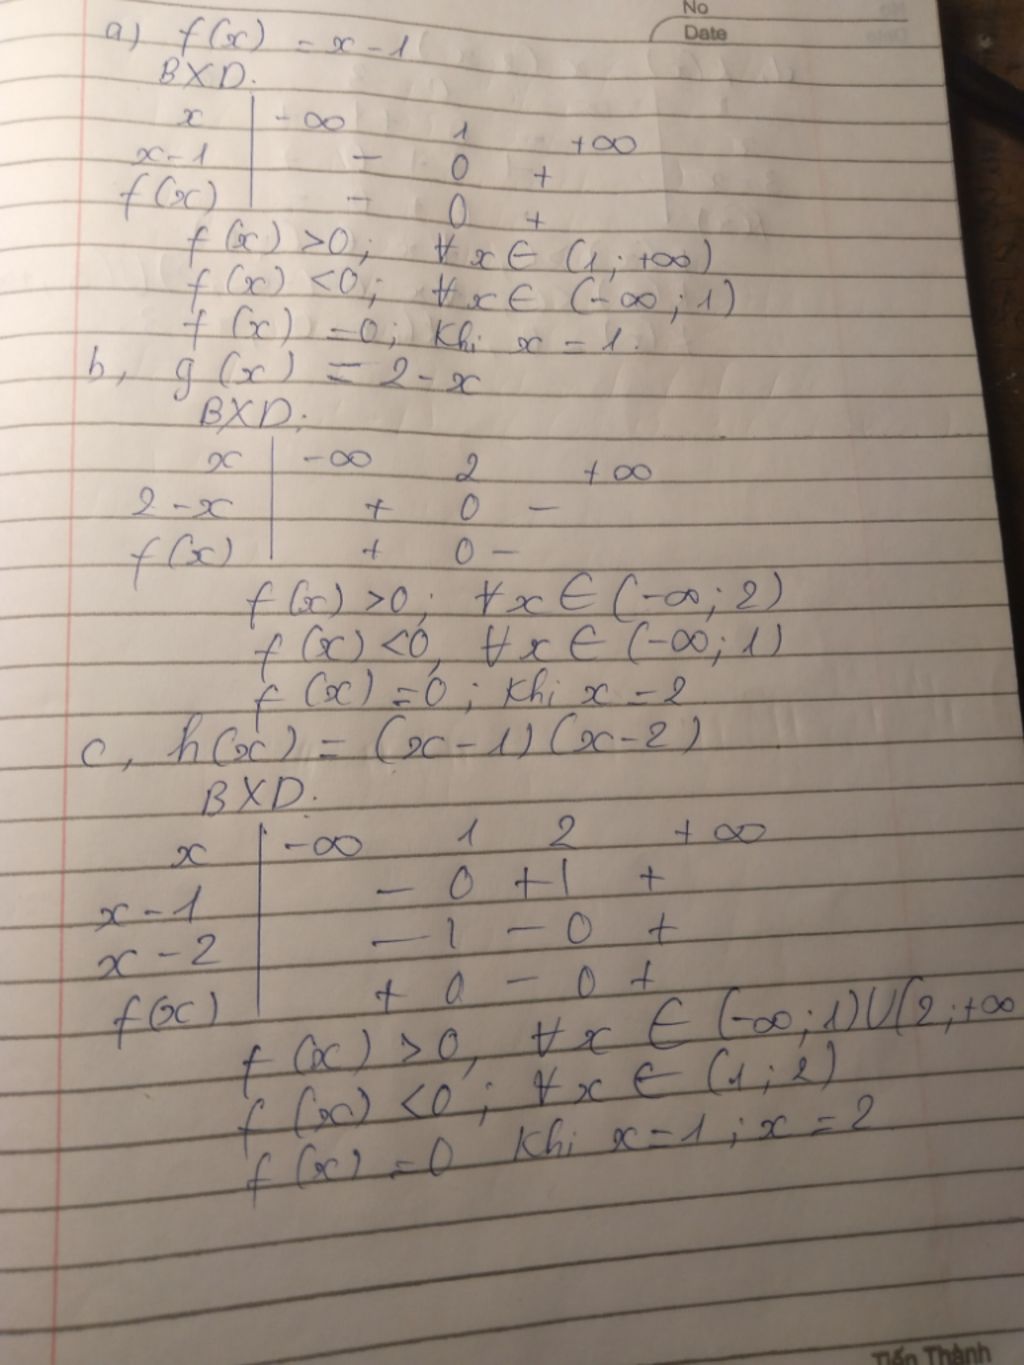 No
Date
a) f(x) = x - 1
BXD:
x | -∞ 1 +∞
x-1 | - 0 +
f(x) | - 0 +
f(x) >0; ∀x∈ (1; +∞)
f(x) <0; ∀x∈ (-∞; 1)
f(x) =0; Khi x = 1.
b, g(x) = 2-x
BXD:
x | -∞ 2 +∞
2-x | + 0 -
f(x) | + 0 -
f(x) >0; ∀x∈(-∞; 2)
f(x) <0, ∀x∈(-∞; 1)
f(x) =0; Khi x = 2
c, h(x) = (x-1)(x-2)
BXD.
x | -∞ 1 2 +∞
x-1 | - 0 + | +
x-2 | - | - 0 +
f(x) | + 0 - 0 +
f(x) >0, ∀x ∈ (-∞; 1)∪(2; +∞
f(x) <0; ∀x ∈ (1; 2)
f(x) =0 Khi x=1; x=2
Tiến Thành